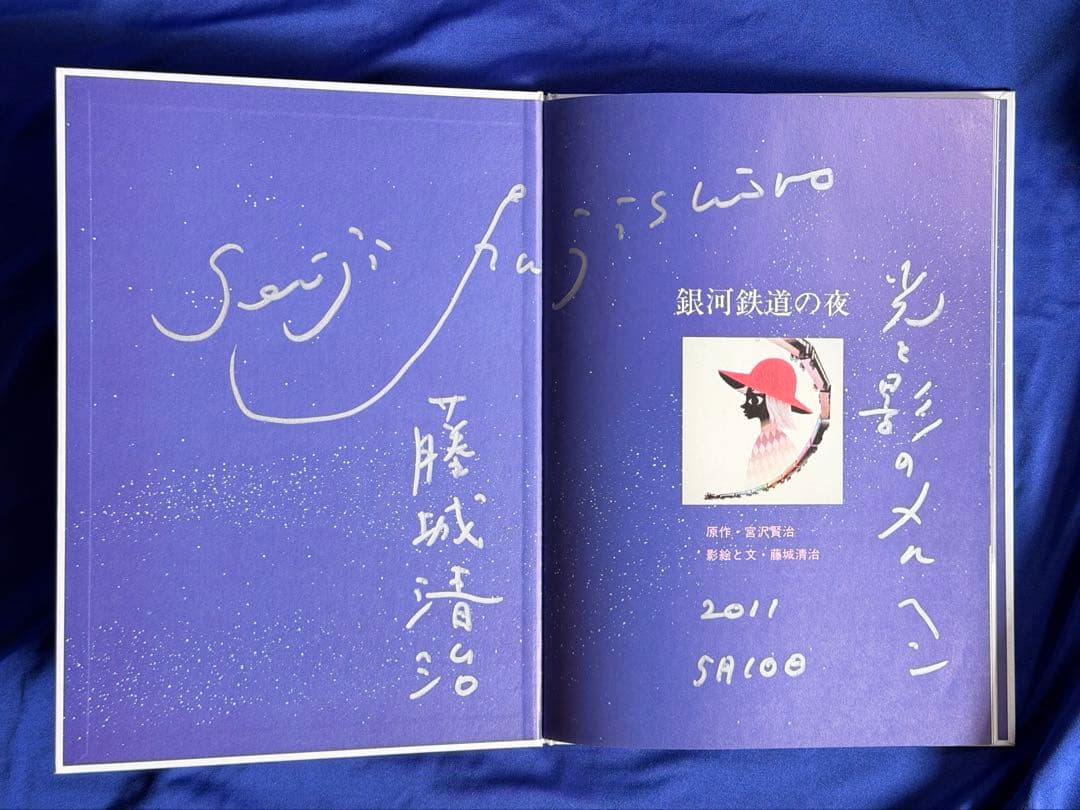 Seiji Fujishiro
藤城清治
銀河鉄道の夜
原作・宮沢賢治
影絵と文・藤城清治
光と影のメルヘン
2011
5月10日